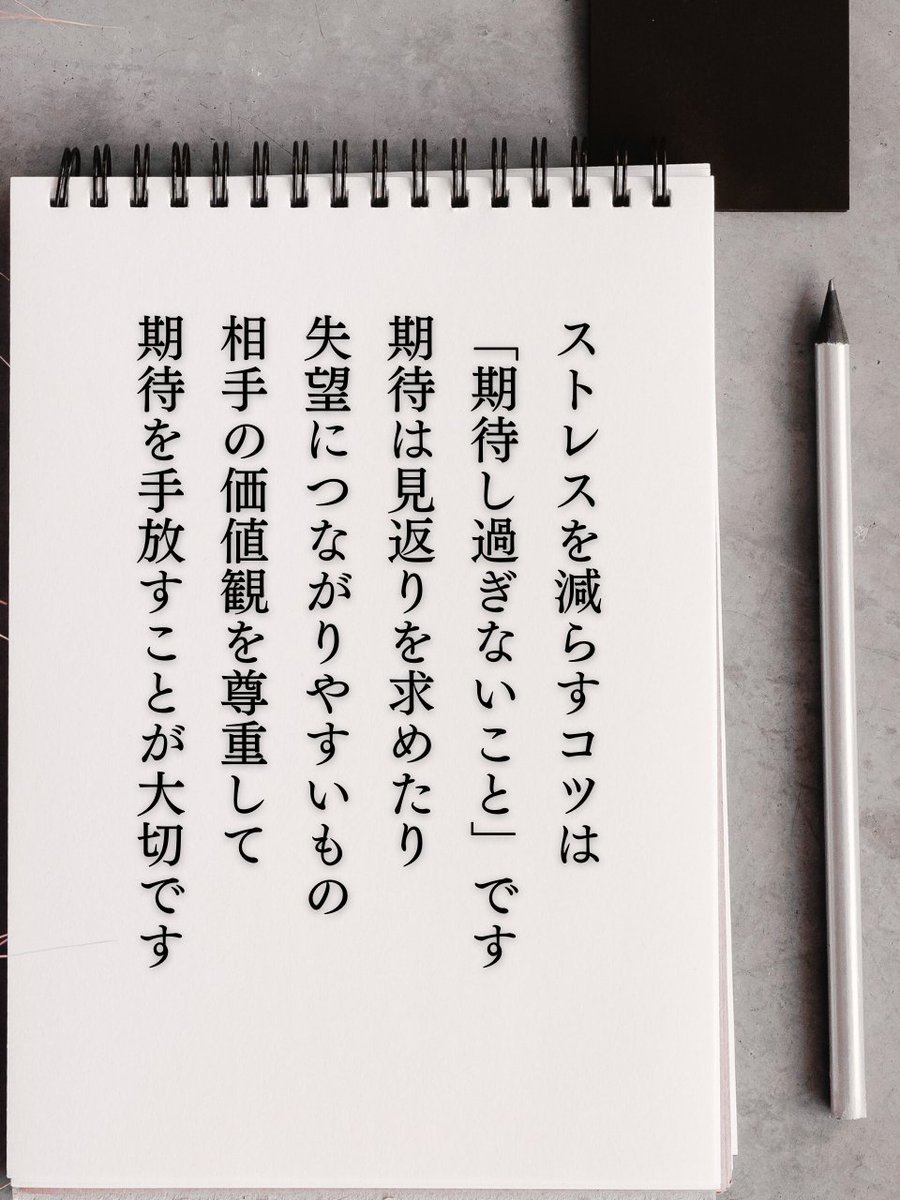 ストレスを減らすコツは
「期待し過ぎないこと」です
期待は見返りを求めたり
失望につながりやすいもの
相手の価値観を尊重して
期待を手放すことが大切です